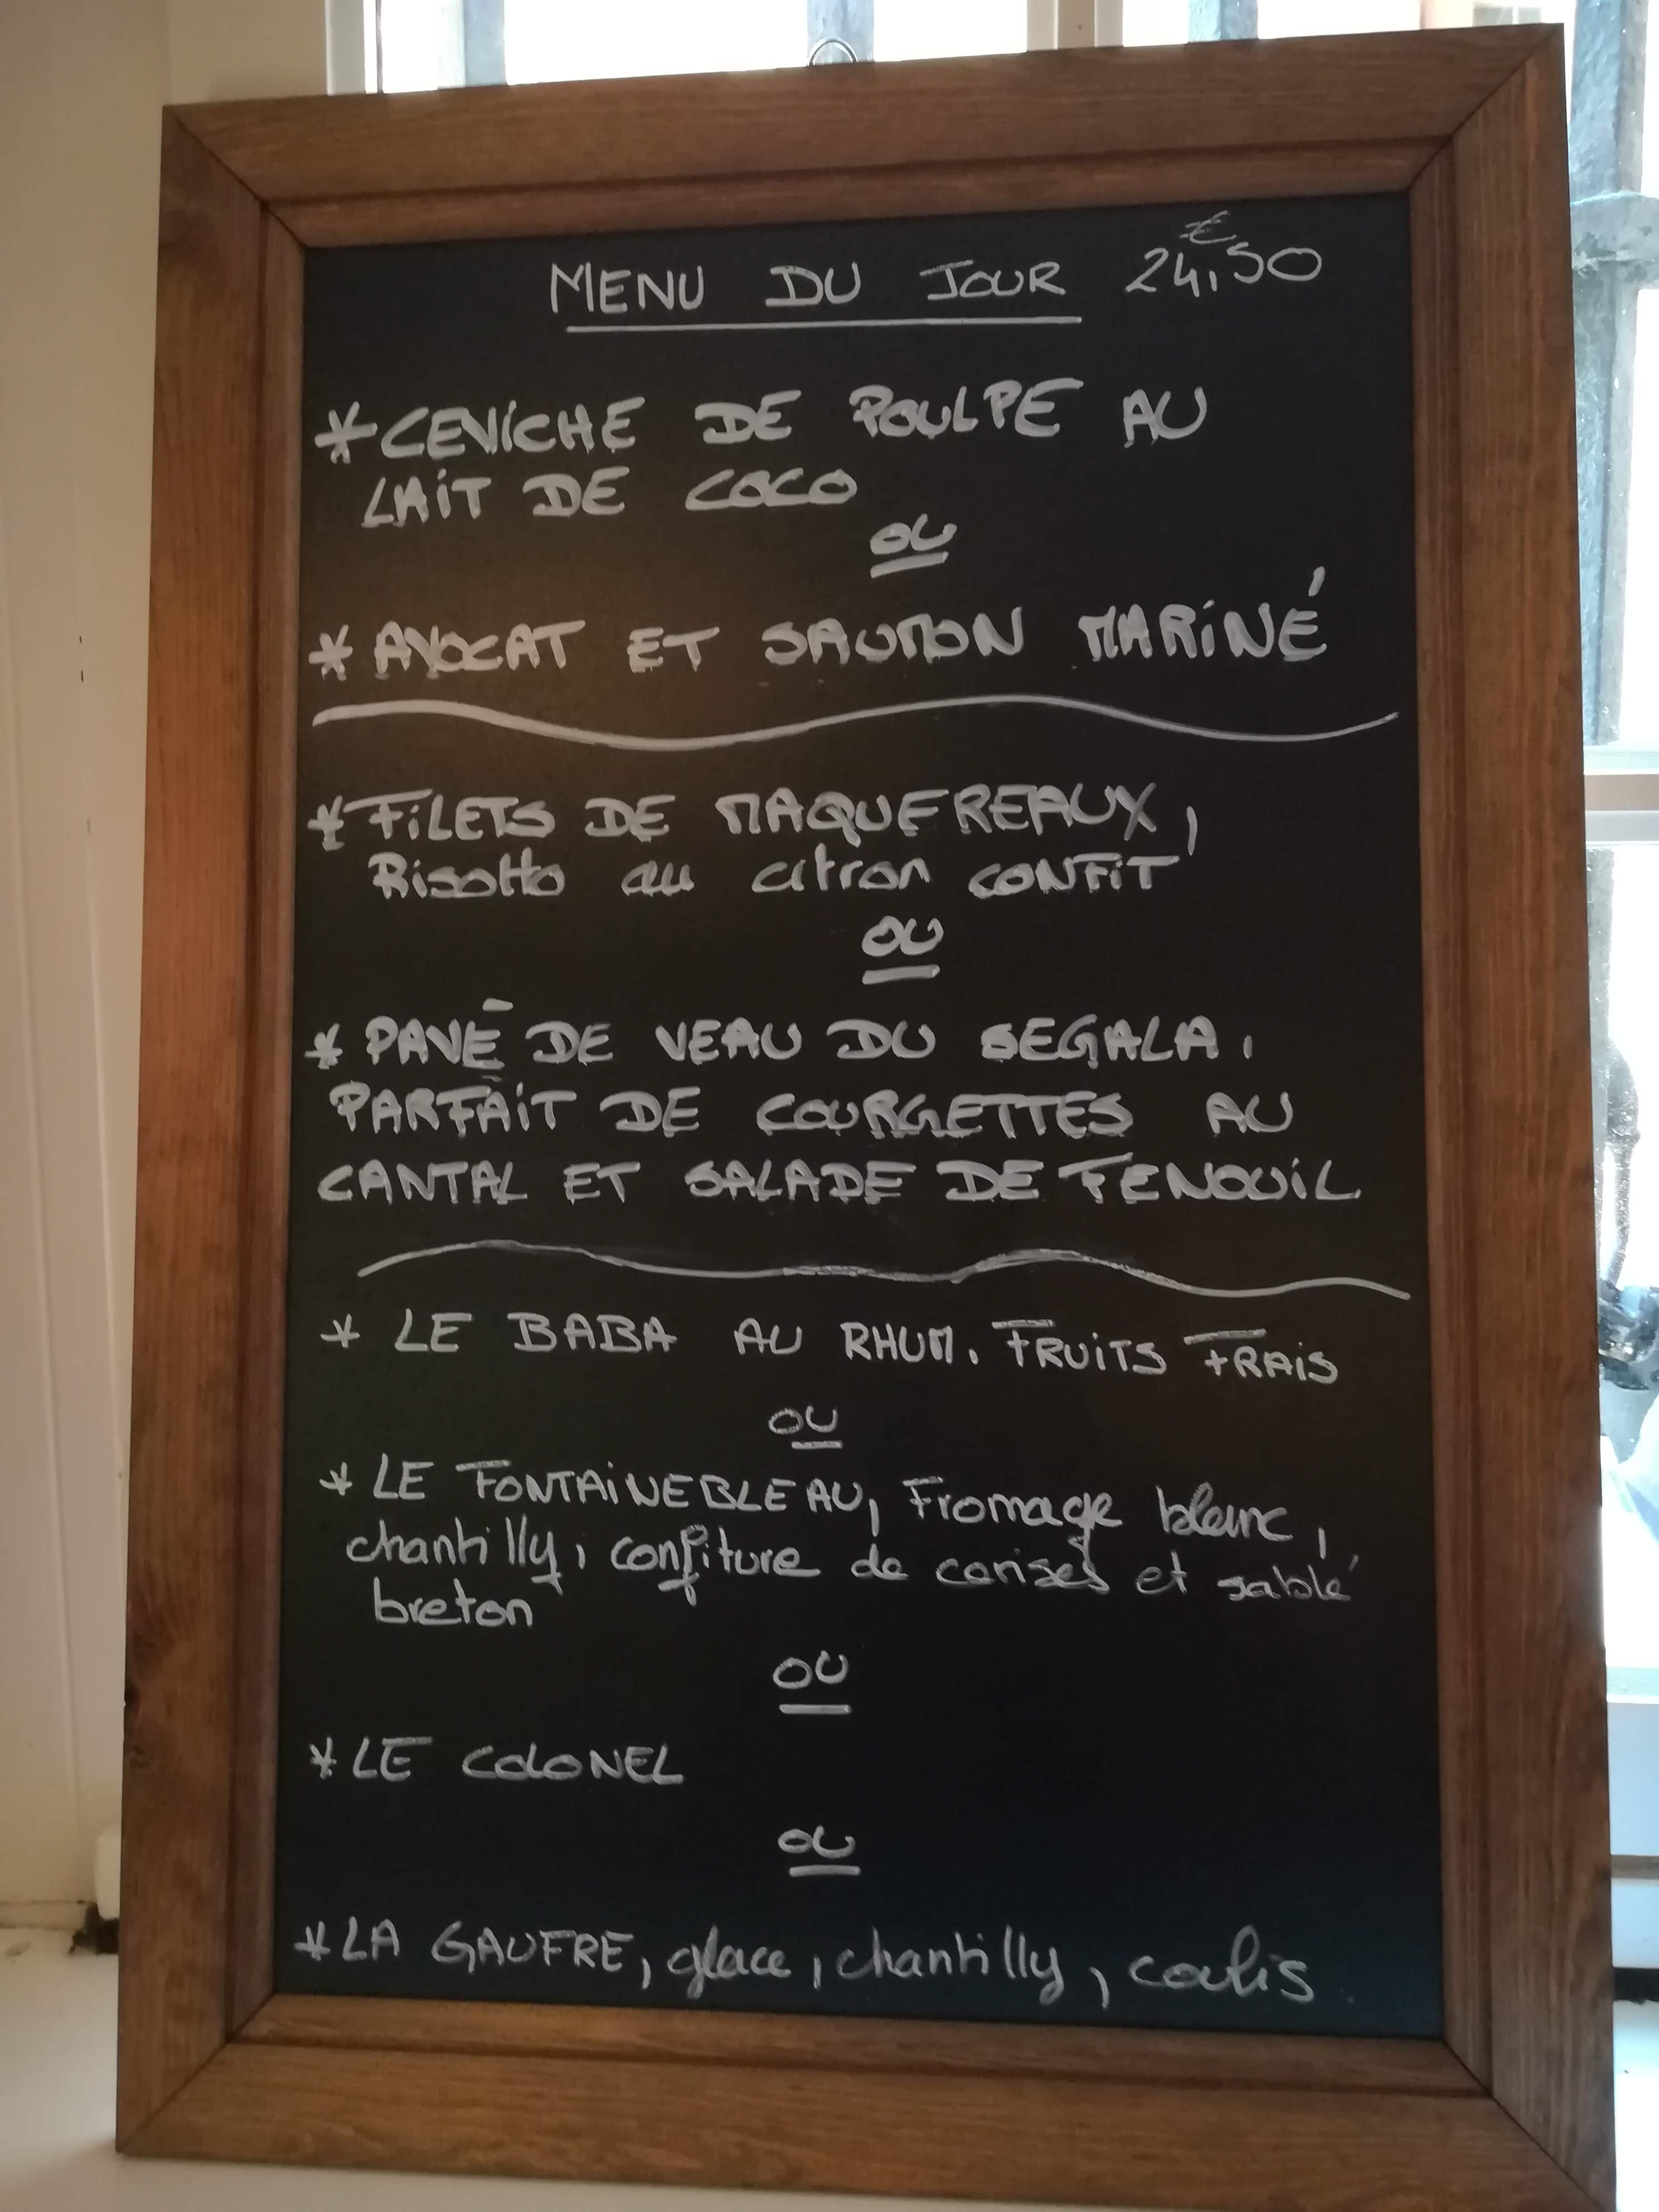 MENU DU JOUR 24,50 €
* CEVICHE DE POULPE AU
LAIT DE COCO
OU
* AVOCAT ET SAUMON MARINÉ
* FILETS DE MAQUEREAUX,
Risotto au citron CONFIT
OU
* PAVÉ DE VEAU DU SEGALA,
PARFAIT DE COURGETTES AU
CANTAL ET SALADE DE FENOUIL
* LE BABA AU RHUM. FRUITS FRAIS
OU
* LE FONTAINEBLEAU, Fromage blanc,
chantilly, confiture de cerises et sablé
breton
OU
* LE COLONEL
OU
* LA GAUFRE, glace, chantilly, coulis